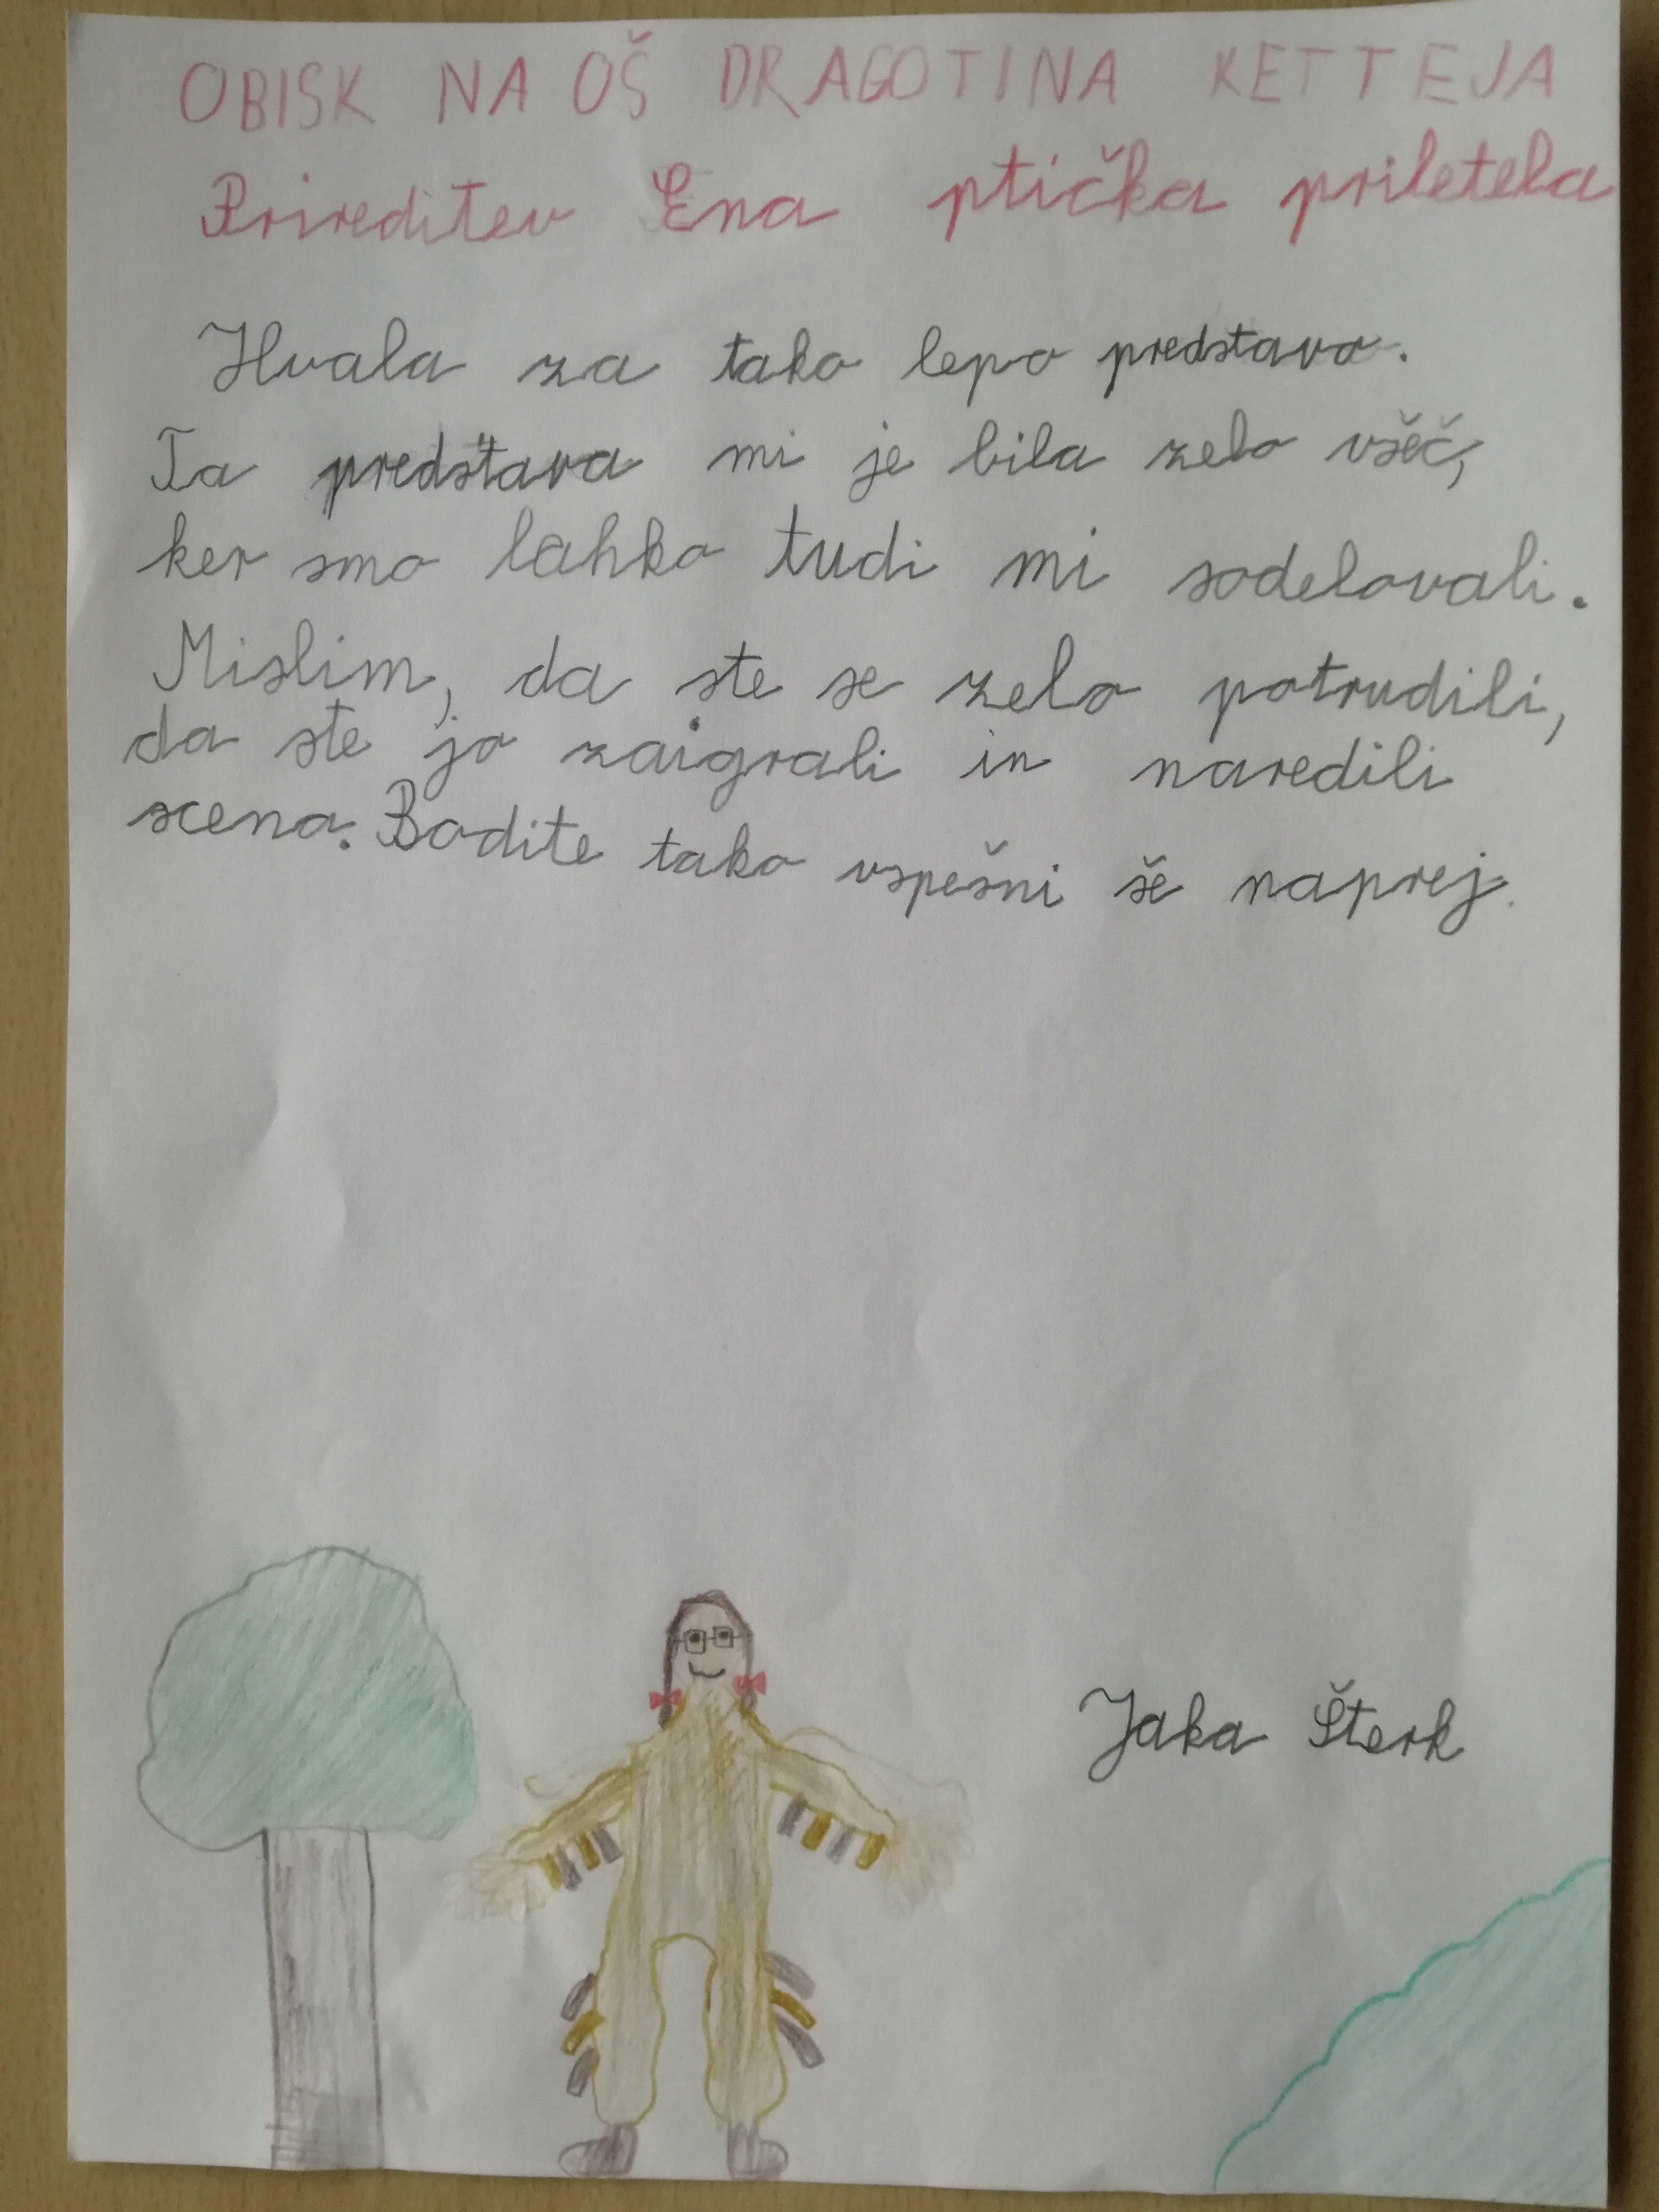 OBISK NA OŠ DRAGOTINA KETTEJA
Prireditev Ena ptička priletela
Hvala za tako lepo predstavo.
Ta predstava mi je bila zelo všeč,
ker smo lahko tudi mi sodelovali.
Mislim, da ste se zelo potrudili,
da ste jo zaigrali in naredili
sceno. Bodite tako uspešni še naprej.
Jaka Šterk